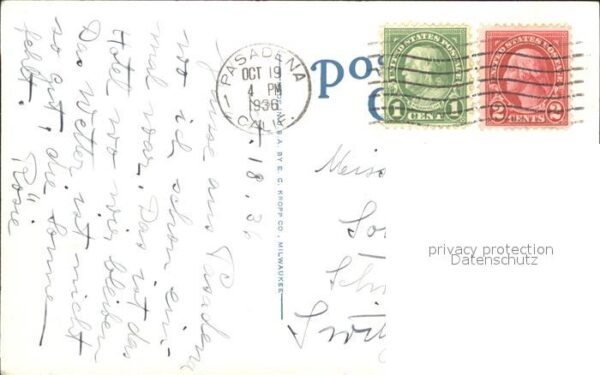 Grüsse aus Pasadena
wo ich schon ein-
mal war. Das ist das
Hotel wo wir bleiben
Das Wetter ist nicht
so gut, die Sonne
fehlt.
"Rösie
X. 18. 36
PASADENA
OCT 19
4 PM
1936
CALIF.
UNITED STATES POSTAGE
1 CENT 1
UNITED STATES POSTAGE
2 CENTS 2
MADE IN U.S.A. BY E. C. KROPP CO., MILWAUKEE
privacy protection
Datenschutz